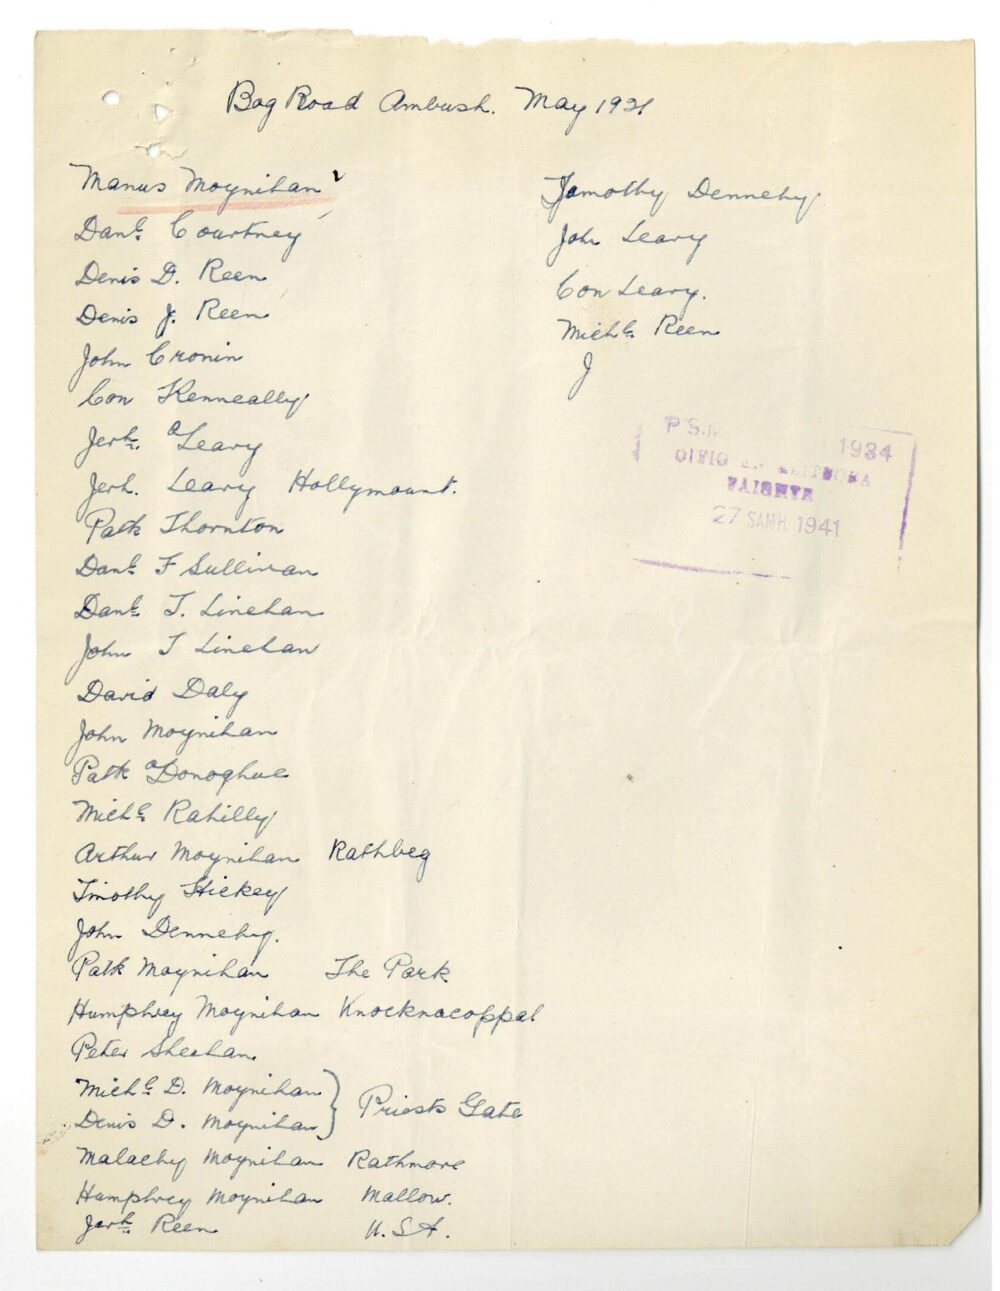 Bog Road Ambush. May 1921
Manus Moynihan
Danl. Courtney
Denis D. Reen
Denis J. Reen
John Cronin
Con Kenneally
Jerh. O'Leary
Jerh. Leary Hollymount.
Patk Thornton
Danl. F Sullivan
Danl. T. Linehan
John T Linehan
David Daly
John Moynihan
Patk O'Donoghue
Michl. Rahilly
Arthur Moynihan Rathbeg
Timothy Hickey
John Dennehy.
Patk Moynihan The Park
Humphrey Moynihan Knocknacoppal
Peter Sheehan
Michl. D. Moynihan
Denis D. Moynihan
Priests Gate
Malachy Moynihan Rathmore
Humphrey Moynihan Mallow.
Jerh. Reen U.S.A.
Tamothy Dennehy
John Leary
Con Leary.
Michl. Reen
J
1934
OIFIG
27 SAMH. 1941